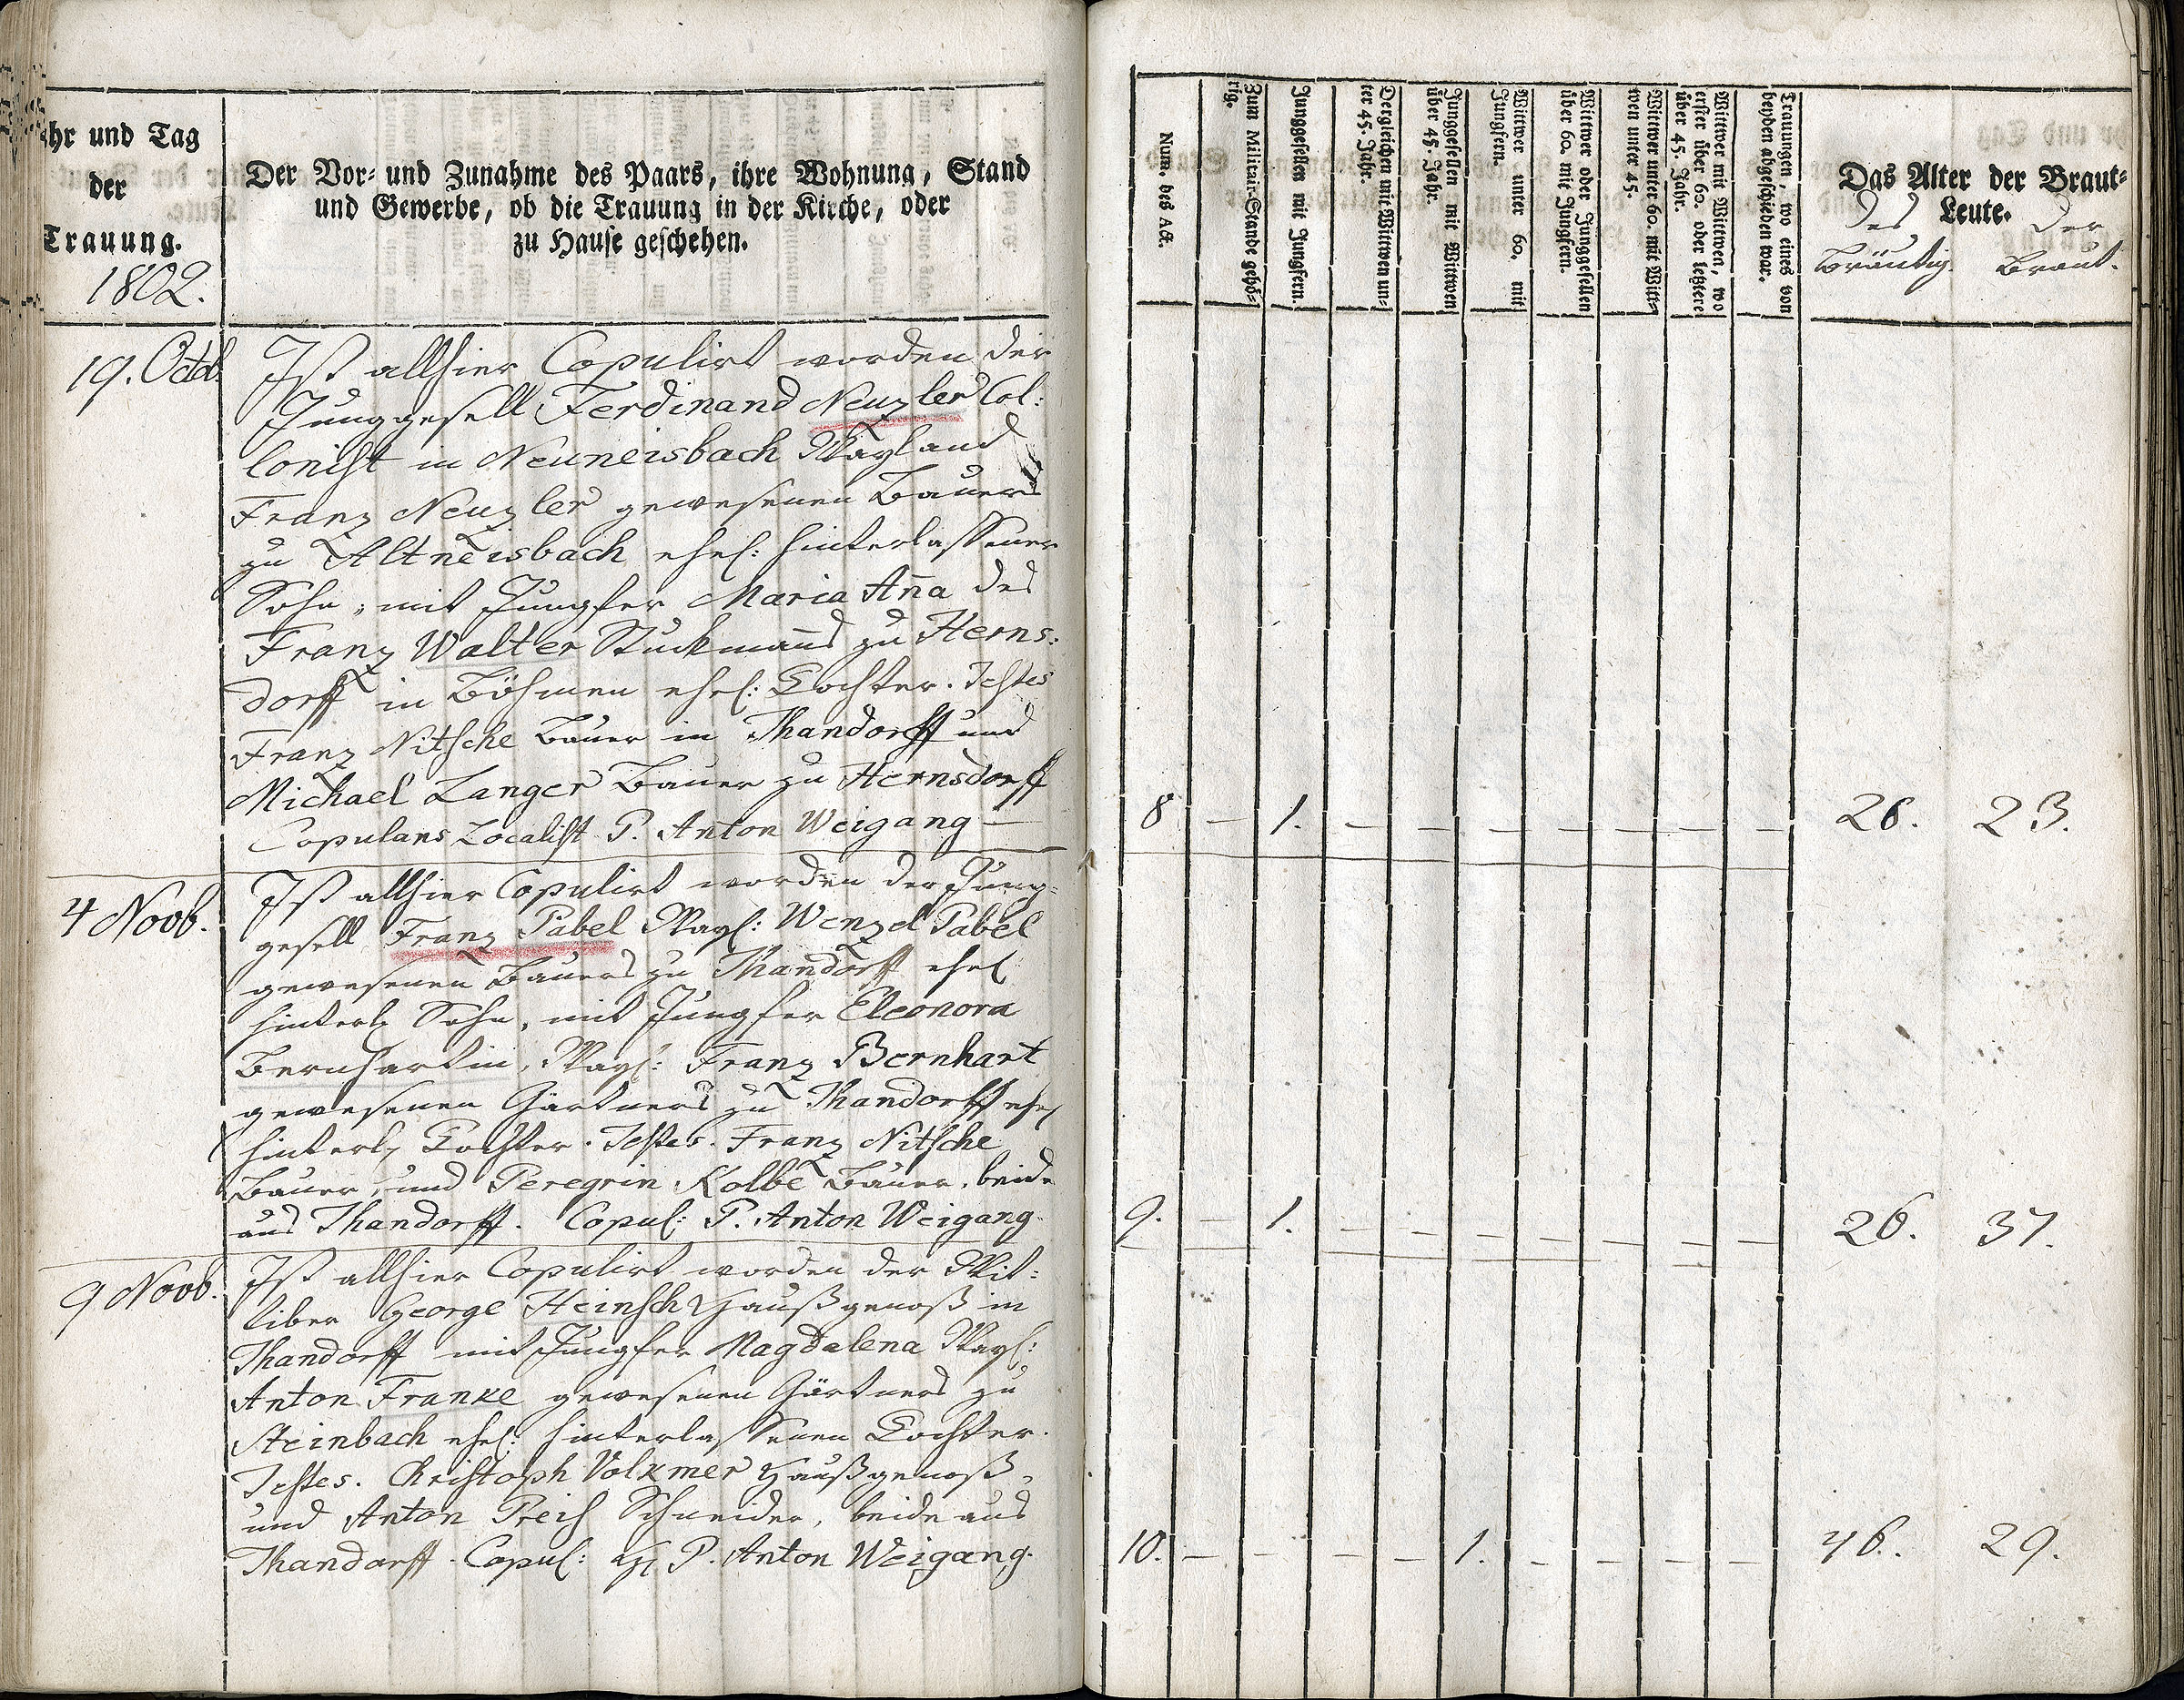 hr und Tag
der
Trauung.
1802.
Der Vor- und Zunahme des Paars, ihre Wohnung, Stand
und Gewerbe, ob die Trauung in der Kirche, oder
zu Hause geschehen.
19. Octob:
Ist allhier Copulirt worden der
Junggesell Ferdinand Neuzler Col:
lonist in Neuneisbach Weyland
Franz Neuzler gewesenen Bauers
zu Altneisbach ehel: hinterlassener
Sohn, mit Jungfer Maria Aña des
Franz Walter Stuckmañs zu Herns:
dorff in Böhmen ehel: Tochter. Testes
Franz Nitsche Bauer in Thandorff und
Michael Langer Bauer zu Hernsdorff
Copulans Localist P. Anton Weigang
4 Novb.
Ist allhier Copulirt worden der Jung-
gesell Franz Pabel Weyl: Wenzel Pabel
gewesenen Bauers zu Thandorff ehel
hinterl. Sohn, mit Jungfer Eleonora
Bernhartin, Weyl: Franz Bernhart
gewesenen Gärtners zu Thandorff ehel
hinterl. Tochter. Testes. Franz Nitsche
Bauer, und Peregrin Kolbe Bauer, beide
aus Thandorff. Copul: P. Anton Weigang.
9 Novb.
Ist allhier Copulirt worden der Wit:
tiber George Heinsch Haußgenoß in
Thandorff mit Jungfer Magdalena Weyl:
Anton Franke gewesenen Gärtners zu
Steinbach ehel: hinterlassenen Tochter.
Testes. Christoph Volkmer Haußgenoß,
und Anton Preis Schneider, beide aus
Thandorff. Copul: P. Anton Weigang.
Num. des Act.
Zum Militair-Stande gehö-
rig.
Junggesellen mit Jungfern.
Dergleichen mit Wittwen un-
ter 45. Jahr.
Junggesellen mit Wittwen
über 45. Jahr.
Wittwer unter 60. mit
Jungfern.
Wittwer oder Junggesellen
über 60. mit Jungfern.
Wittwer unter 60. mit Witt-
wen unter 45.
Wittwer mit Wittwen, wo
erster über 60. oder letztere
über 45. Jahr.
Trauungen, wo eines von
beyden abgeschieden war.
Das Alter der Braut-
Leute.
des der
Bräutig. Braut.
8 – 1. – – – – – – – 26. 23.
9. – 1. – – – – – – – 26. 37.
10. – – – – 1. – – – – 46. 29.